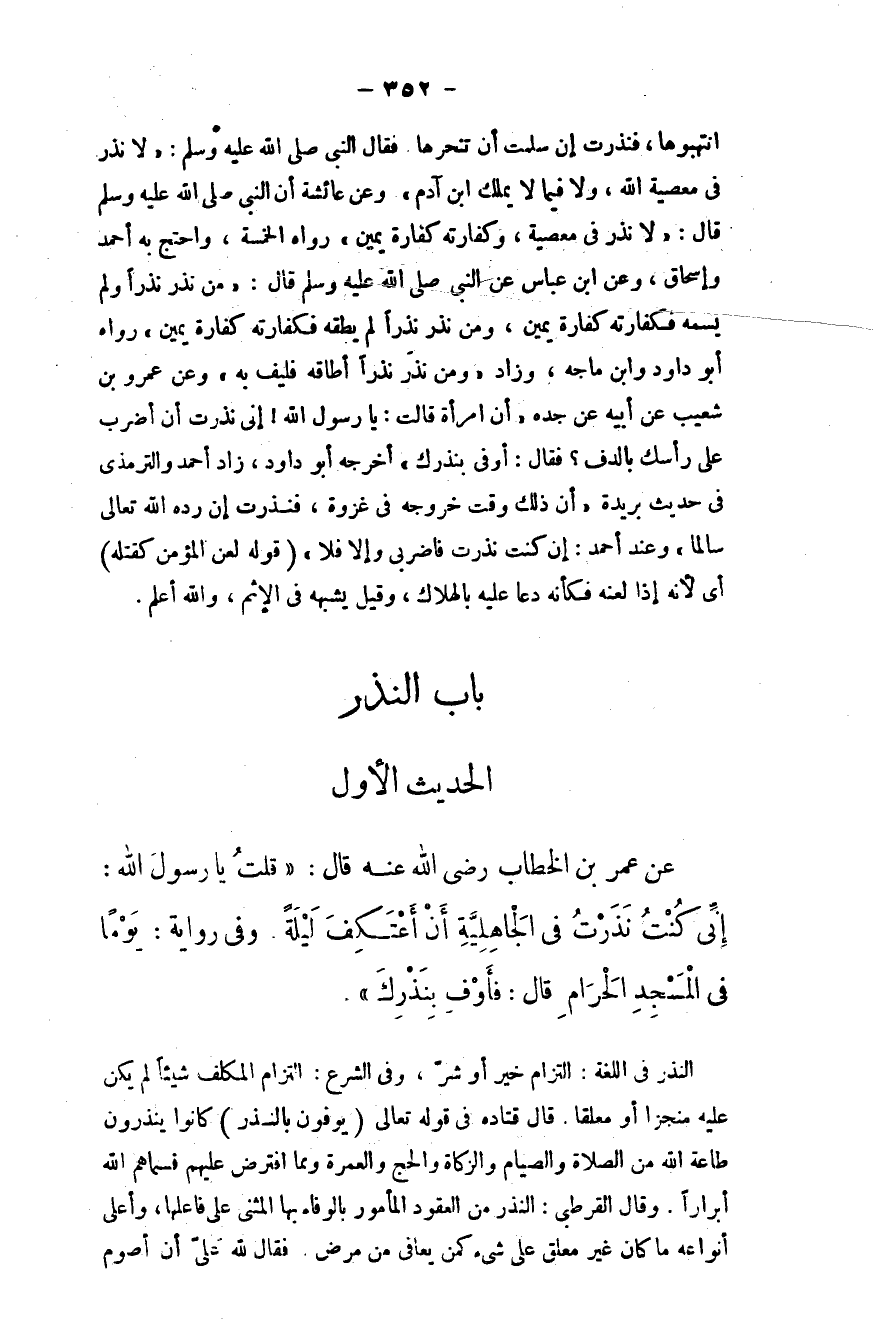 - ٣٥٢ -
انتهبوها، فنذرت إن سلمت أن تنحرها. فقال النبى صلى الله عليه وسلم: «لا نذر
فى معصية الله، ولا فيما لا يملك ابن آدم» وعن عائشة أن النبى صلى الله عليه وسلم
قال: «لا نذر فى معصية، وكفارته كفارة يمين» رواه الخمسة، واحتج به أحمد
وإسحاق، وعن ابن عباس عن النبى صلى الله عليه وسلم قال: «من نذر نذراً ولم
يسمه فكفارته كفارة يمين، ومن نذر نذراً لم يطقه فكفارته كفارة يمين» رواه
أبو داود وابن ماجه، وزاد «ومن نذر نذراً أطاقه فليف به» وعن عمرو بن
شعيب عن أبيه عن جده «أن امرأة قالت: يا رسول الله! إنى نذرت أن أضرب
على رأسك بالدف؟ فقال: أوفى بنذرك» أخرجه أبو داود، زاد أحمد والترمذى
فى حديث بريدة «أن ذلك وقت خروجه فى غزوة، فنذرت إن رده الله تعالى
سالما» وعند أحمد: إن كنت نذرت فاضربى وإلا فلا» (قوله لعن المؤمن كقتله)
أى لأنه إذا لعنه فكأنه دعا عليه بالهلاك، وقيل يشبهه فى الإثم، والله أعلم.
باب النذر
الحديث الأول
عن عمر بن الخطاب رضى الله عنه قال: «قلتُ يا رسولَ الله:
إِنِّى كُنْتُ نَذَرْتُ فى الجَاهِلِيَّةِ أَنْ أَعْتَكِفَ لَيْلَةً. وفى رواية: يَوْمًا
فى المَسْجِدِ الحَرَامِ قال: فأَوْفِ بِنَذْرِكَ».
النذر فى اللغة: التزام خير أو شرّ، وفى الشرع: التزام المكلف شيئاً لم يكن
عليه منجزا أو معلقا. قال قتاده فى قوله تعالى (يوفون بالنذر) كانوا ينذرون
طاعة الله من الصلاة والصيام والزكاة والحج والعمرة ومما افترض عليهم فسماهم الله
أبراراً. وقال القرطبى: النذر من العقود المأمور بالوفاء بها المثنى على فاعلها، وأعلى
أنواعه ما كان غير معلق على شىء كمن يعافى من مرض. فقال لله علىّ أن أصوم